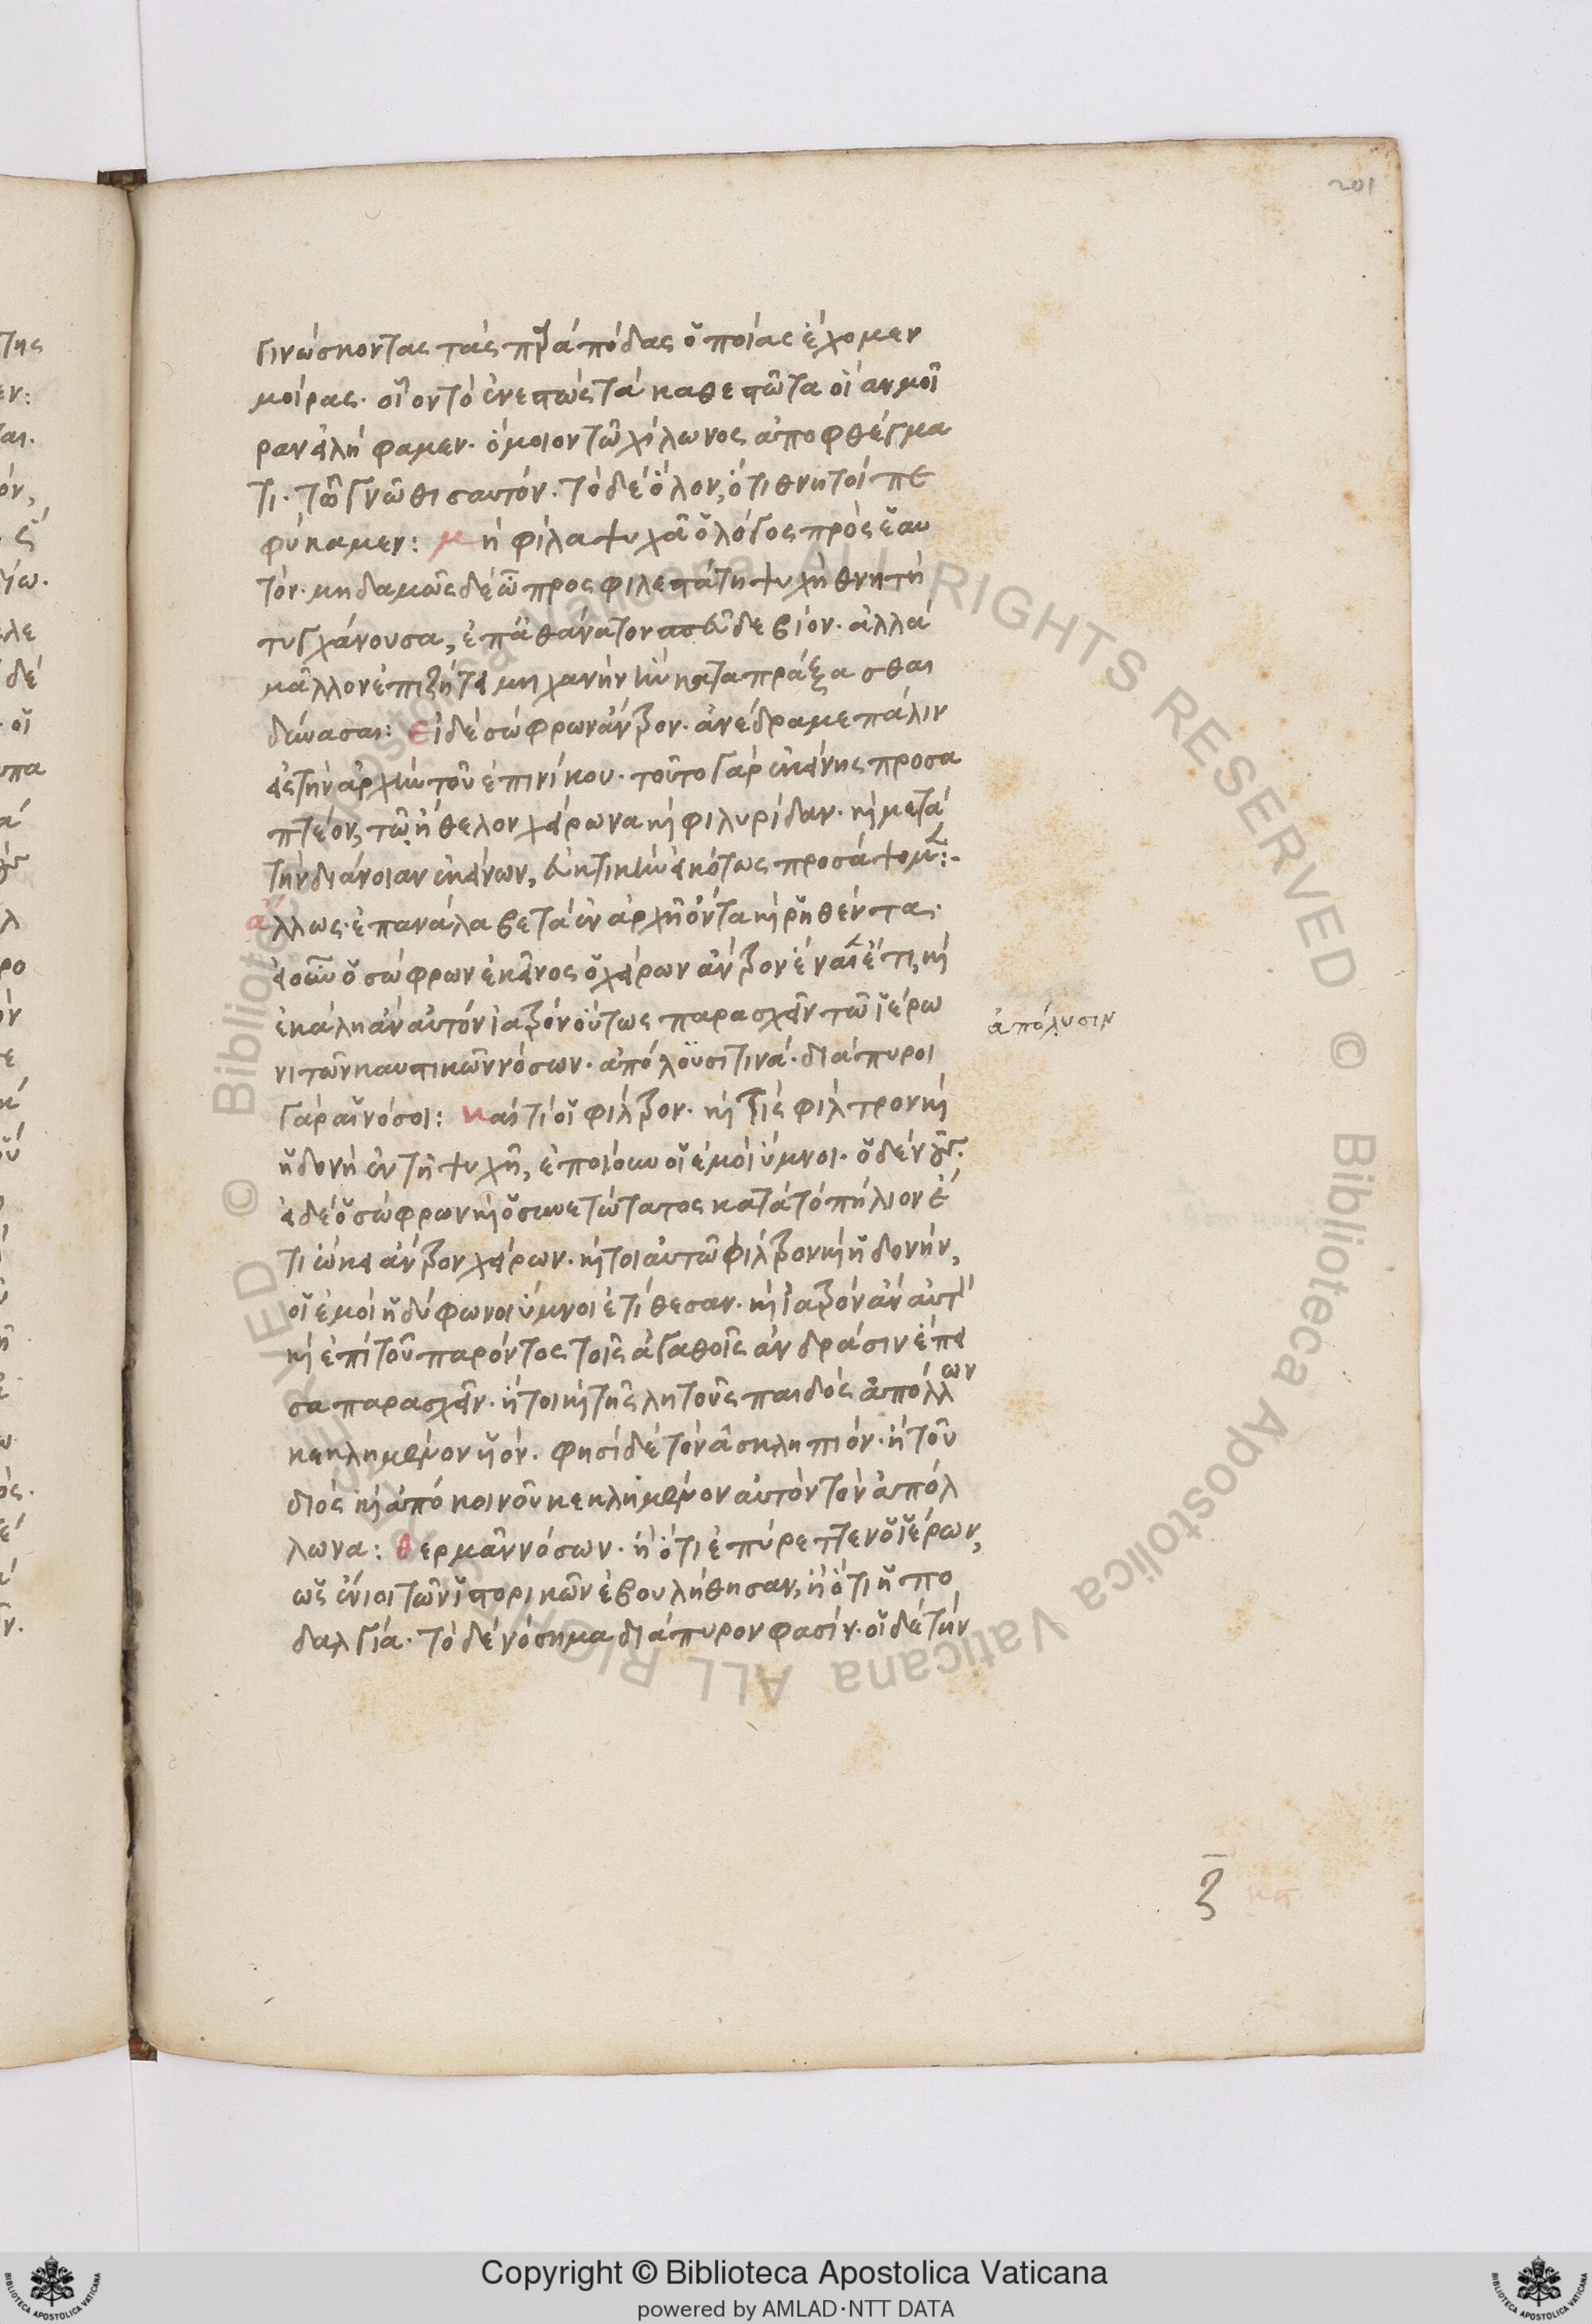 201
γινώσκοντας τὰς πρ̑ὰ πόδας ὁποίας ἔχομεν
μοίρας. οἷον τὸ ἐνεστὼς τὰ καθεστῶτα οἵαν μοῖ
ραν εἰλήφαμεν. ὅμοιον τῶ χίλωνος ἀποφθέγμα
τι. τῶ γνῶθι σαυτόν. τὸ δὲ ὅλον, ὅτι θνητοὶ πε
φύκαμεν: μὴ φίλα ψυχὰ ὁ λόγος πρὸς ἑαυ
τόν. μηδαμῶς δὲ ὦ προσφιλεστάτη ψυχὴ θνητὴ
τυγχάνουσα, ἐπ' ἀθάνατον σπεῦδε βίον. ἀλλὰ
μᾶλλον ἐπιζήτει μηχανὴν ἣν καταπράξασθαι
δύνασαι: εἰ δὲ σώφρων ἄντρον. ἀνέδραμε πάλιν
εἰς τὴν ἀρχὴν τοῦ ἐπινίκου. τοῦτο γὰρ ἐκείνης προσα
πτέον, τῶ ἤθελον χείρωνα κὶ φιλυρίδαν. κὶ μετὰ
τὴν διάνοιαν ἐκείνων, εὐκτικὴν εἰκότως προσάψομ:
ἄλλως. ἐπανάλαβε τὰ ἐν ἀρχῆ ὄντα κὶ ῥηθέντα.
εἰ οὖν ὁ σώφρων ἐκεῖνος ὁ χείρων ἄντρον ἔναι ἔτι, κὶ
ἐκάλη ἂν αὐτὸν ἰατρὸν οὕτως παρασχεῖν τῶ ἱέρω
νι τῶν καυστικῶν νόσων. ἀπόλουσί τινα. διάπυροι
ἀπόλυσιν
γὰρ αἱ νόσοι: καί τί οἱ φίλτρον. κὶ τὶς φίλτρον κὶ
ἡδονὴ ἐν τῆ ψυχῆ, ἐποίουν οἱ ἐμοὶ ὕμνοι. ὁ δὲ νοῦς.
εἰ δὲ ὁ σώφρων κὶ ὁ συνετώτατος κατὰ τὸ πήλιον ἔ
τι ὤκει ἄντρον χείρων. κὶ τοι αὐτῶ φίλτρον κὶ ἡδονὴν,
οἱ ἐμοὶ ἡδύφωνοι ὕμνοι ἐτίθεσαν. κὶ ἰατρὸν ἂν αὐτ
κὶ ἐπὶ τοῦ παρόντος τοῖς ἀγαθοῖς ἀνδράσιν ἔπει
σα παρασχεῖν. ἤτοι κὶ τῆς λητοῦς παιδὸς ἀπόλλων
κεκλημένον υἱόν. φησὶ δὲ τὸν ἀσκληπιόν. ἢ τοῦ
διὸς κὶ ἀπὸ κοινοῦ κεκλημένον αὐτὸν τὸν ἀπόλ
λωνα: θερμᾶν νόσων. ἢ ὅτι ἐπύρεττεν ὁ ἱέρων,
ὡς ἔνιοι τῶν ἱστορικῶν ἐβουλήθησαν, ἢ ὅτι ἡ πο
δαλγία. τὸ δὲ νόσημα διάπυρον φασίν. οἱ δὲ τὴν
ζ
© Biblioteca Apostolica Vaticana ALL RIGHTS RESERVED © Biblioteca Apostolica Vaticana ALL RIGHTS RESERVED
Copyright © Biblioteca Apostolica Vaticana
powered by AMLAD·NTT DATA